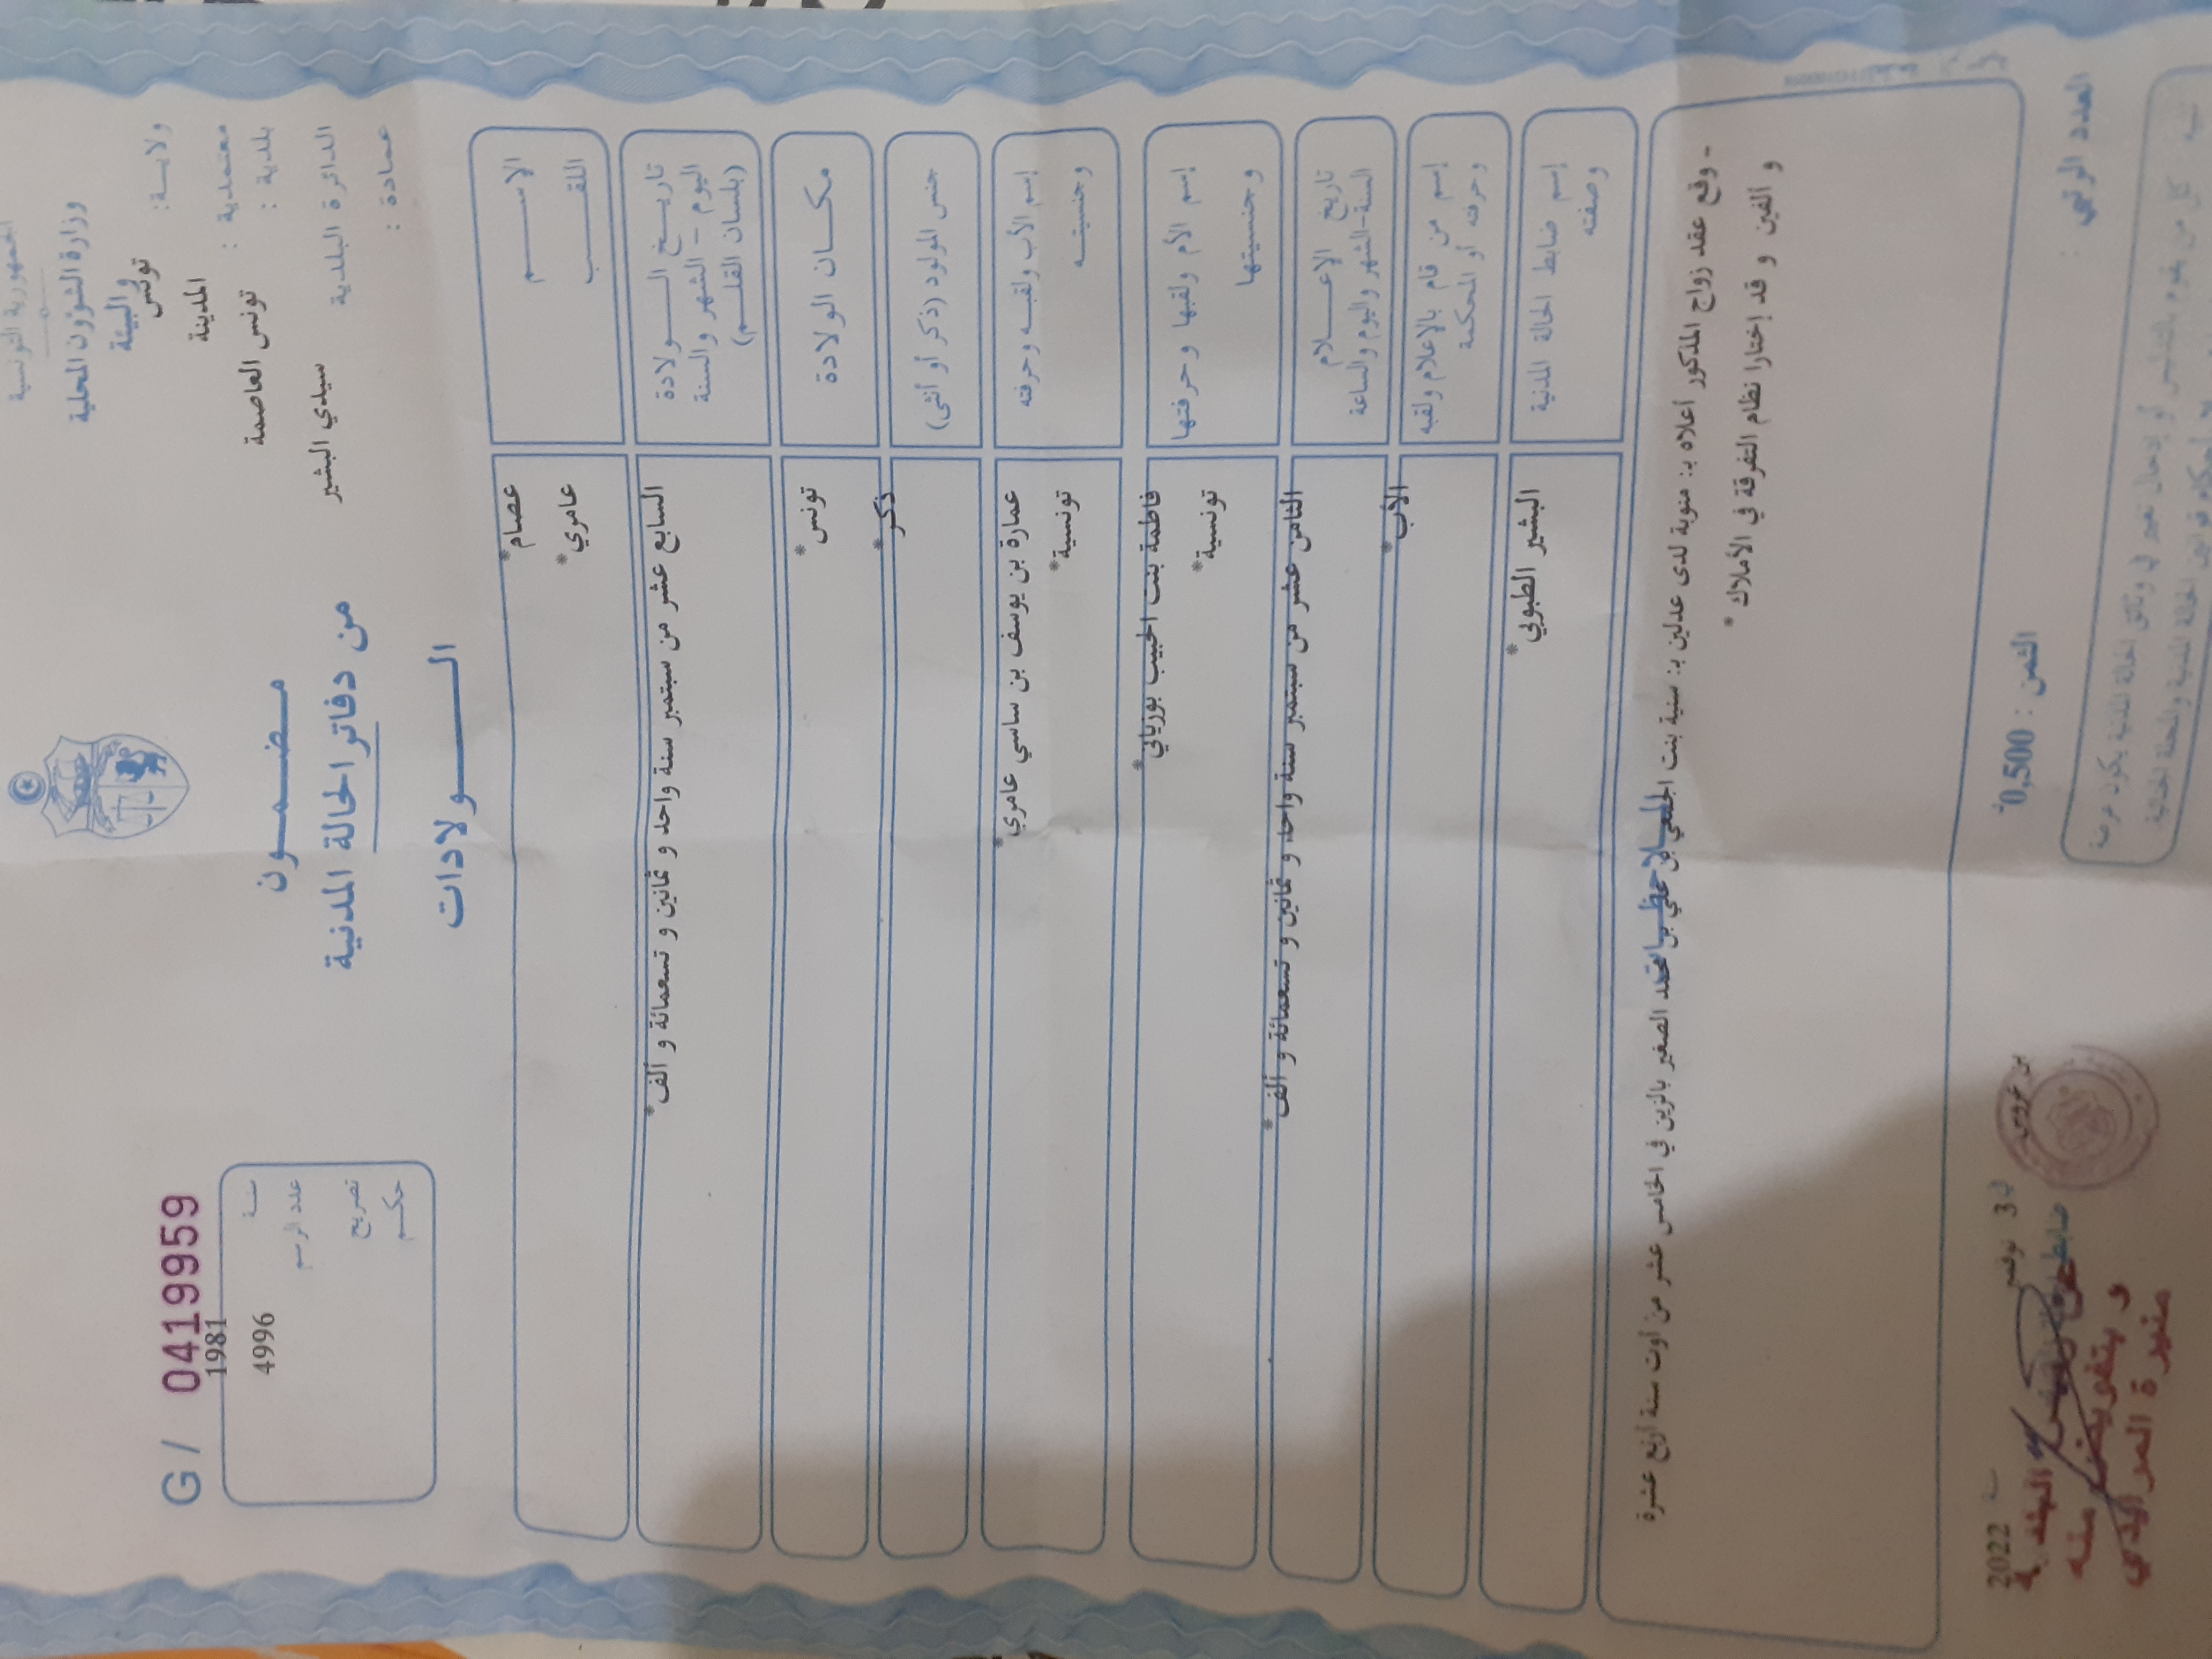 الجمهورية التونسية
وزارة الشؤون المحلية
والبيئة
ولايــة: تونس
معتمدية : المدينة
بلدية : تونس العاصمة
الدائرة البلدية سيدي البشير
عمادة :
مـضـمــون
من دفاتر الحالة المدنية
الــــولادات
G/ 0419959
سنة 1981
عدد الرسم 4996
تصريح
حكم
الإســــم *عصام
اللقــــب *عامري
تاريــخ الــــولادة السابع عشر من سبتمبر سنة واحد و ثمانين و تسعمائة و ألف*
اليوم – الشهر والسنة
(بلسان القلــم)
مكــان الولادة *تونس
جنس المولود (ذكر أو أنثى) *ذكر
إسم الأب ولقبـه وحرفته عمارة بن يوسف بن ساسي عامري*
وجنسيتــه *تونسية
إسم الأم ولقبها وحرفتها فاطمة بنت الحبيب بوزياني*
وجنسيتها *تونسية
تاريخ الإعــــلام الثامن عشر من سبتمبر سنة واحد و ثمانين و تسعمائة و ألف*
السنة-الشهر واليوم والساعة
إسم من قام بالإعلام ولقبه *الأب
وحرفته أو المحكمة
إسم ضابط الحالة المدنية البشير الطبوبي*
وصفته
- وقع عقد زواج المذكور أعلاه بـ: منوبة لدى عدلين بـ: سنية بنت الجمعي بن علي بن محمد الصغير بالزين في الخامس عشر من أوت سنة أربع عشرة
و ألفين و قد إختارا نظام التفرقة في الأملاك *
العدد الرتبي :
الثمن : 0,500
بن عروس
في 3 نوفمبر سنة 2022
و بتفويض منه
منيرة المرايدي